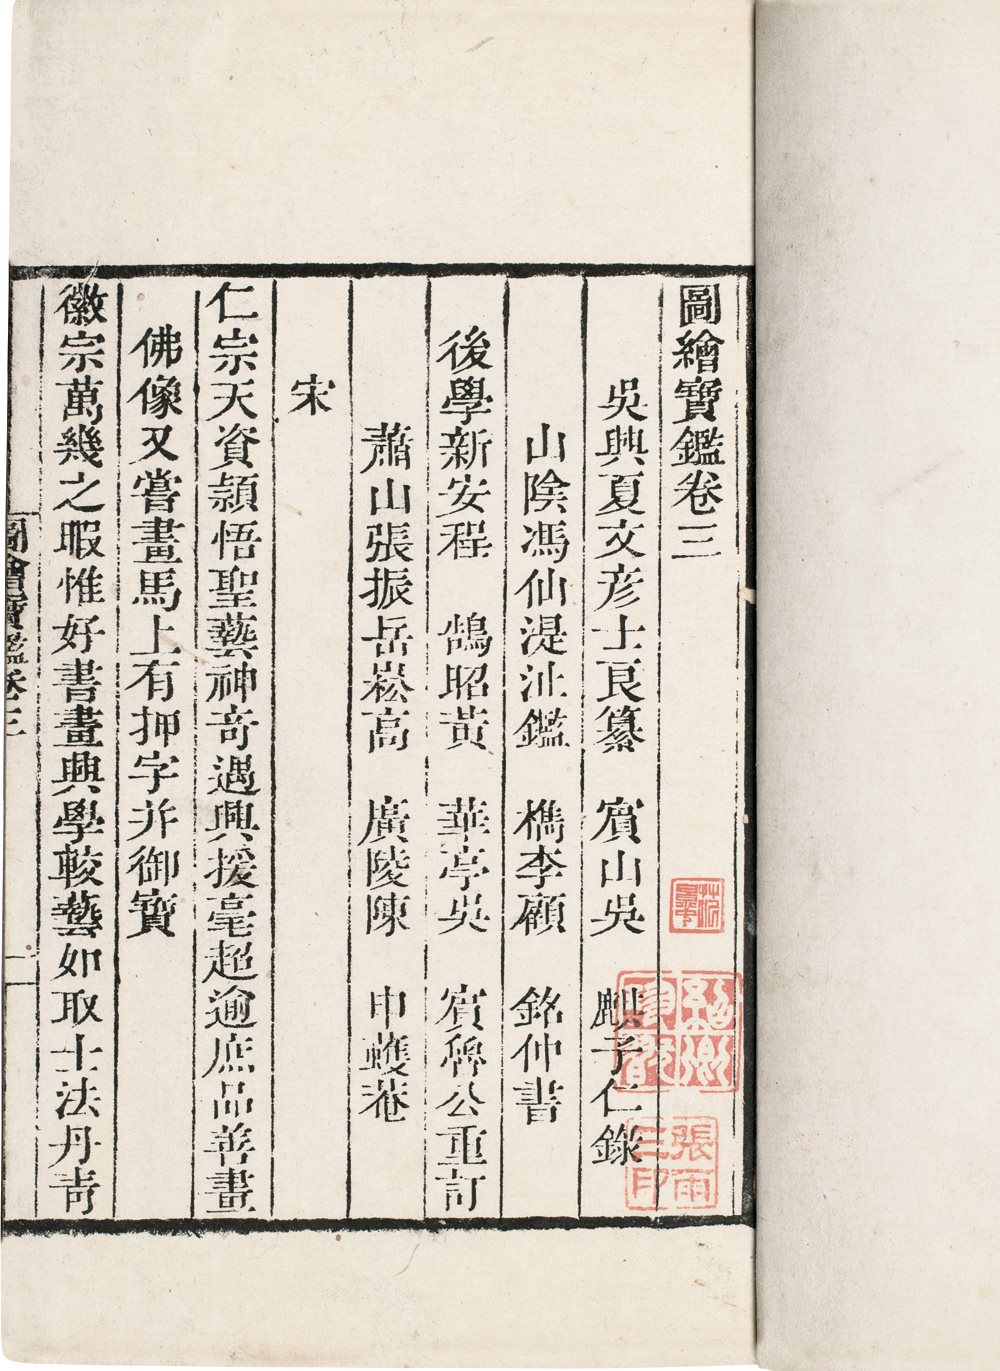 圖繪寶鑑卷三
吳興夏文彦士良纂　賓山吳　麒子仁錄
山陰馮仙湜沚鑑　檇李顧　銘仲書
後學新安程　鵠昭黃　華亭吳　賓魯公重訂
蕭山張振岳崧高　廣陵陳　申蠖菴
宋
仁宗天資頴悟聖藝神奇遇興援毫超逾庶品善畫
佛像又嘗畫馬上有押字并御寶
徽宗萬幾之暇惟好書畫興學較藝如取士法丹青
圖繪寶鑑卷三
一
張雨三印